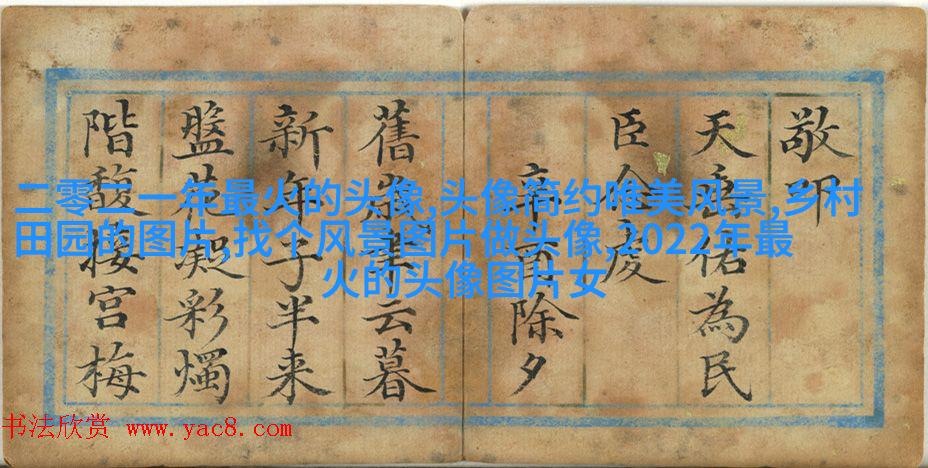 敬叩
天佑為民
臣
辛酉除夕
舊歲云暮
新年子半来
盤花凝彩燭
階馥接宫梅
二零二一年最火的头像,头像简约唯美风景,乡村
田园的图片,找个风景图片做头像,2022年最
火的头像图片女
书法欣赏 www.yac8.com